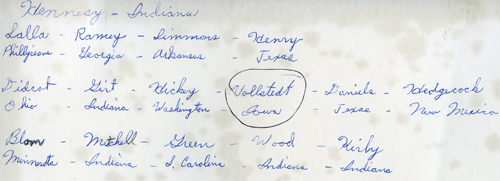 Hennesy - Indiana
Lalla - Ramey - Simmors - Henry
Phillipians - Georgia - Arkansas - Texas
Didcot - Girt - Hickey - Vollstedt - Daniels - Hedgecock
Ohio - Indiana - Washington - Iowa - Texas - New Mexico
Blom - Mitchell - Green - Wood - Kirby
Minnesota - Indiana - S. Carolina - Indiana - Indiana